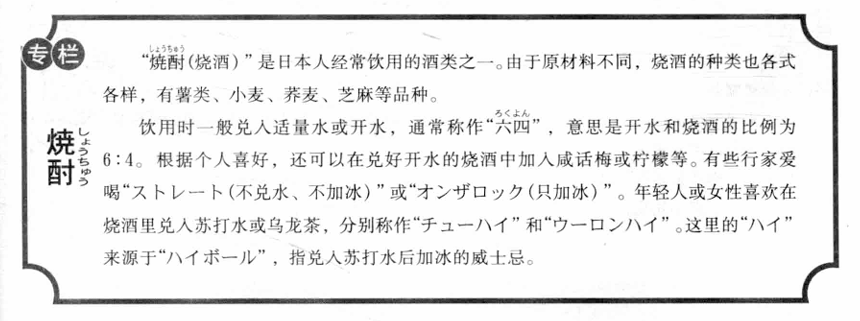 专栏
焼酎
しょうちゅう
しょうちゅう
“焼酎(烧酒)”是日本人经常饮用的酒类之一。由于原材料不同，烧酒的种类也各式
各样，有薯类、小麦、荞麦、芝麻等品种。
ろくよん
饮用时一般兑入适量水或开水，通常称作“六四”，意思是开水和烧酒的比例为
6:4。根据个人喜好，还可以在兑好开水的烧酒中加入咸话梅或柠檬等。有些行家爱
喝“ストレート(不兑水、不加冰)”或“オンザロック(只加冰)”。年轻人或女性喜欢在
烧酒里兑入苏打水或乌龙茶，分别称作“チューハイ”和“ウーロンハイ”。这里的“ハイ”
来源于“ハイボール”，指兑入苏打水后加冰的威士忌。